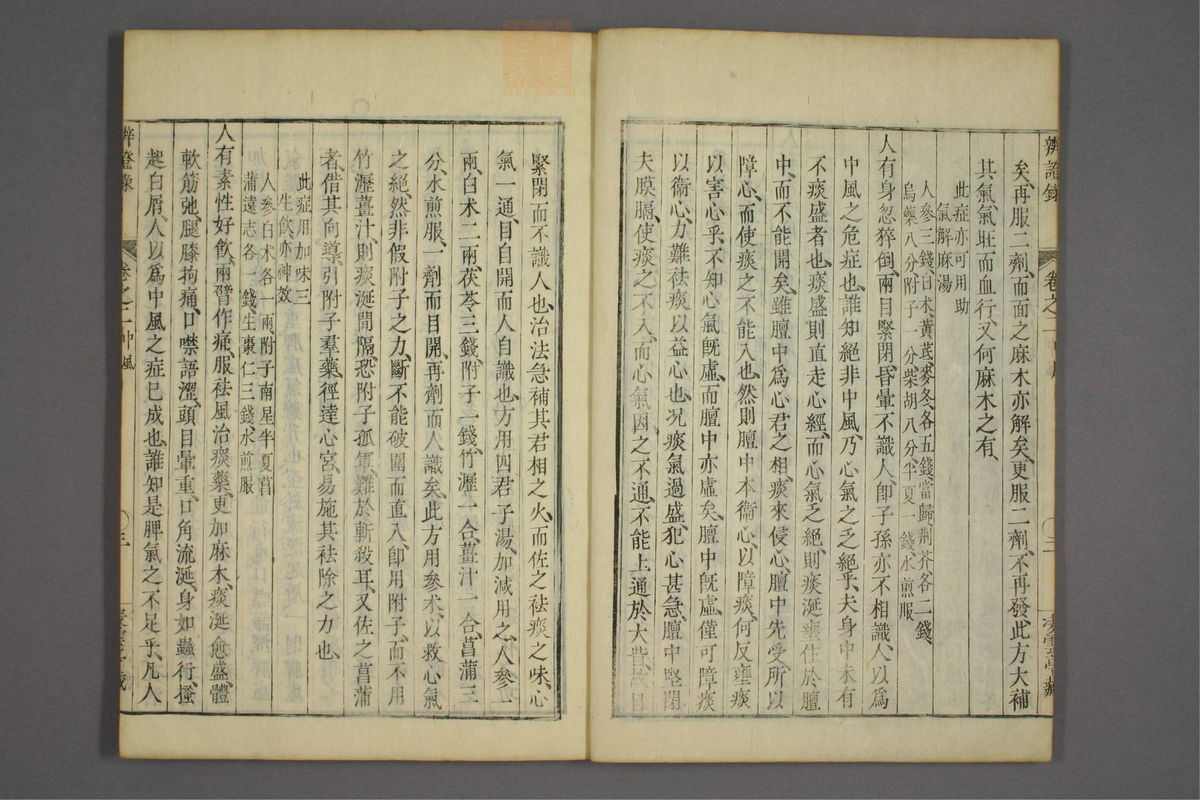 矣、再服二劑、而面之麻木亦解矣、更服二劑、不再發、此方大補
其氣、氣旺而血行、又何麻木之有、
此症亦可用助
氣解麻湯
人參三錢、白朮、黃芪、麥冬各五錢、當歸、荊芥各二錢、
烏藥八分、附子一分、柴胡八分、半夏一錢、水煎服、
人有身忽猝倒、兩目緊閉、昏暈不識人、即子孫亦不相識、人以爲
中風之危症也、誰知絕非中風、乃心氣之乏絕乎、夫身中未有
不痰盛者也、痰盛則直走心經、而心氣乏絕、則痰涎壅住於膻
中、而不能開矣、雖膻中爲心君之相、痰來侵心、膻中先受、所以
障心、而使痰之不能入也、然則膻中本衞心、以障痰、何反壅痰
以害心乎、不知心氣旣虛、而膻中亦虛矣、膻中旣虛、僅可障痰
以衞心、力難祛痰以益心也、况痰氣過盛、犯心甚急、膻中堅閉
夫膜膈、使痰之不入、而心氣因之不通、不能上通於大
緊閉而不識人也、治法急補其君相之火、而佐之祛痰之味、心
氣一通、目自開而人自識也、方用四君子湯、加減用之、人參一
兩、白朮二兩、茯苓三錢、附子一錢、竹瀝一合、薑汁一合、菖蒲三
分、水煎服、一劑而目開、再劑而人識矣、此方用參朮、以救心氣
之絕、然非假附子之力、斷不能破圍而直入、即用附子、而不用
竹瀝薑汁、則痰涎間隔、恐附子孤軍、難於斬殺耳、又佐之菖蒲
者、借其向導、引附子羣藥、徑達心宮、易施其祛除之力也、
此症用加味三
生飲亦神效
人參、白朮各一兩、附子、南星、半夏、菖
蒲、遠志各一錢、生棗仁三錢、水煎服
人有素性好飲、兩臂作痛、服祛風治痰藥、更加麻木、痰涎愈盛、體
軟筋弛、腿膝拘痛、口噤語澀、頭目暈重、口角流涎、身如蟲行、搔
起白屑、人以爲中風之症已成也、誰知是脾氣之不足乎、凡人
辨證錄
卷之二中風
三